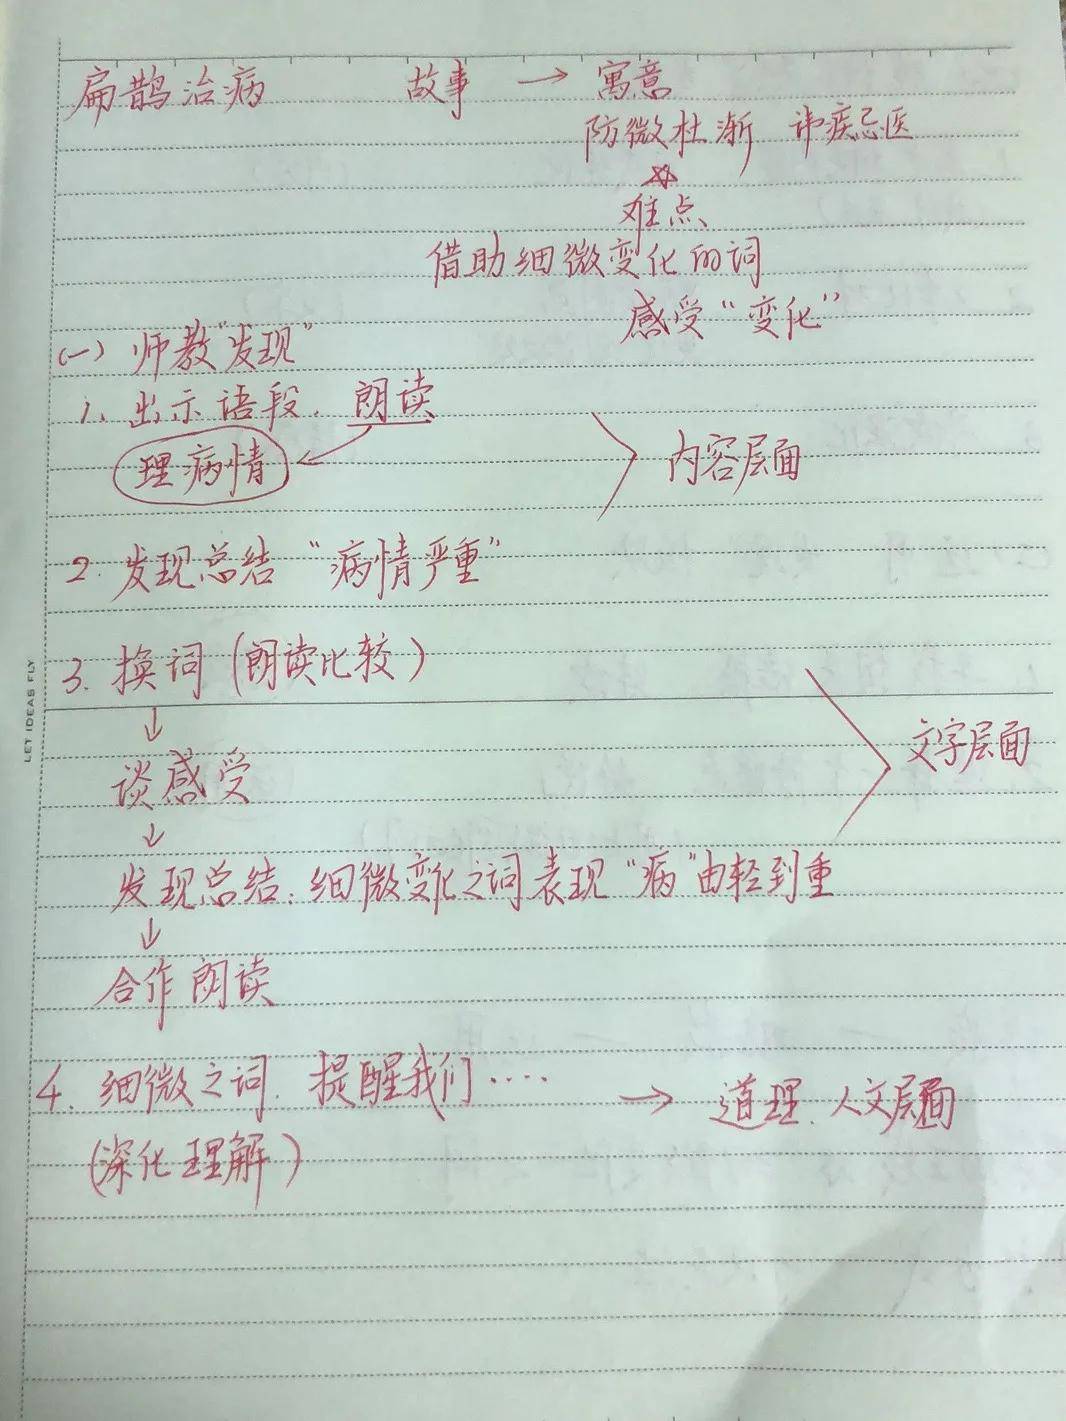 扁鹊治病 故事 → 寓意
防微杜渐 讳疾忌医
难点
借助细微变化的词
感受“变化”
(一) 师教“发现”
1、出示语段. 朗读
理病情
内容层面
2. 发现总结“病情严重”
3. 换词(朗读比较)
↓
文字层面
谈感受
↓
发现总结:细微变化之词表现“病”由轻到重
↓
合作朗读
4. 细微之词. 提醒我们····
→ 道理. 人文层面
(深化理解)
LET IDEAS FLY